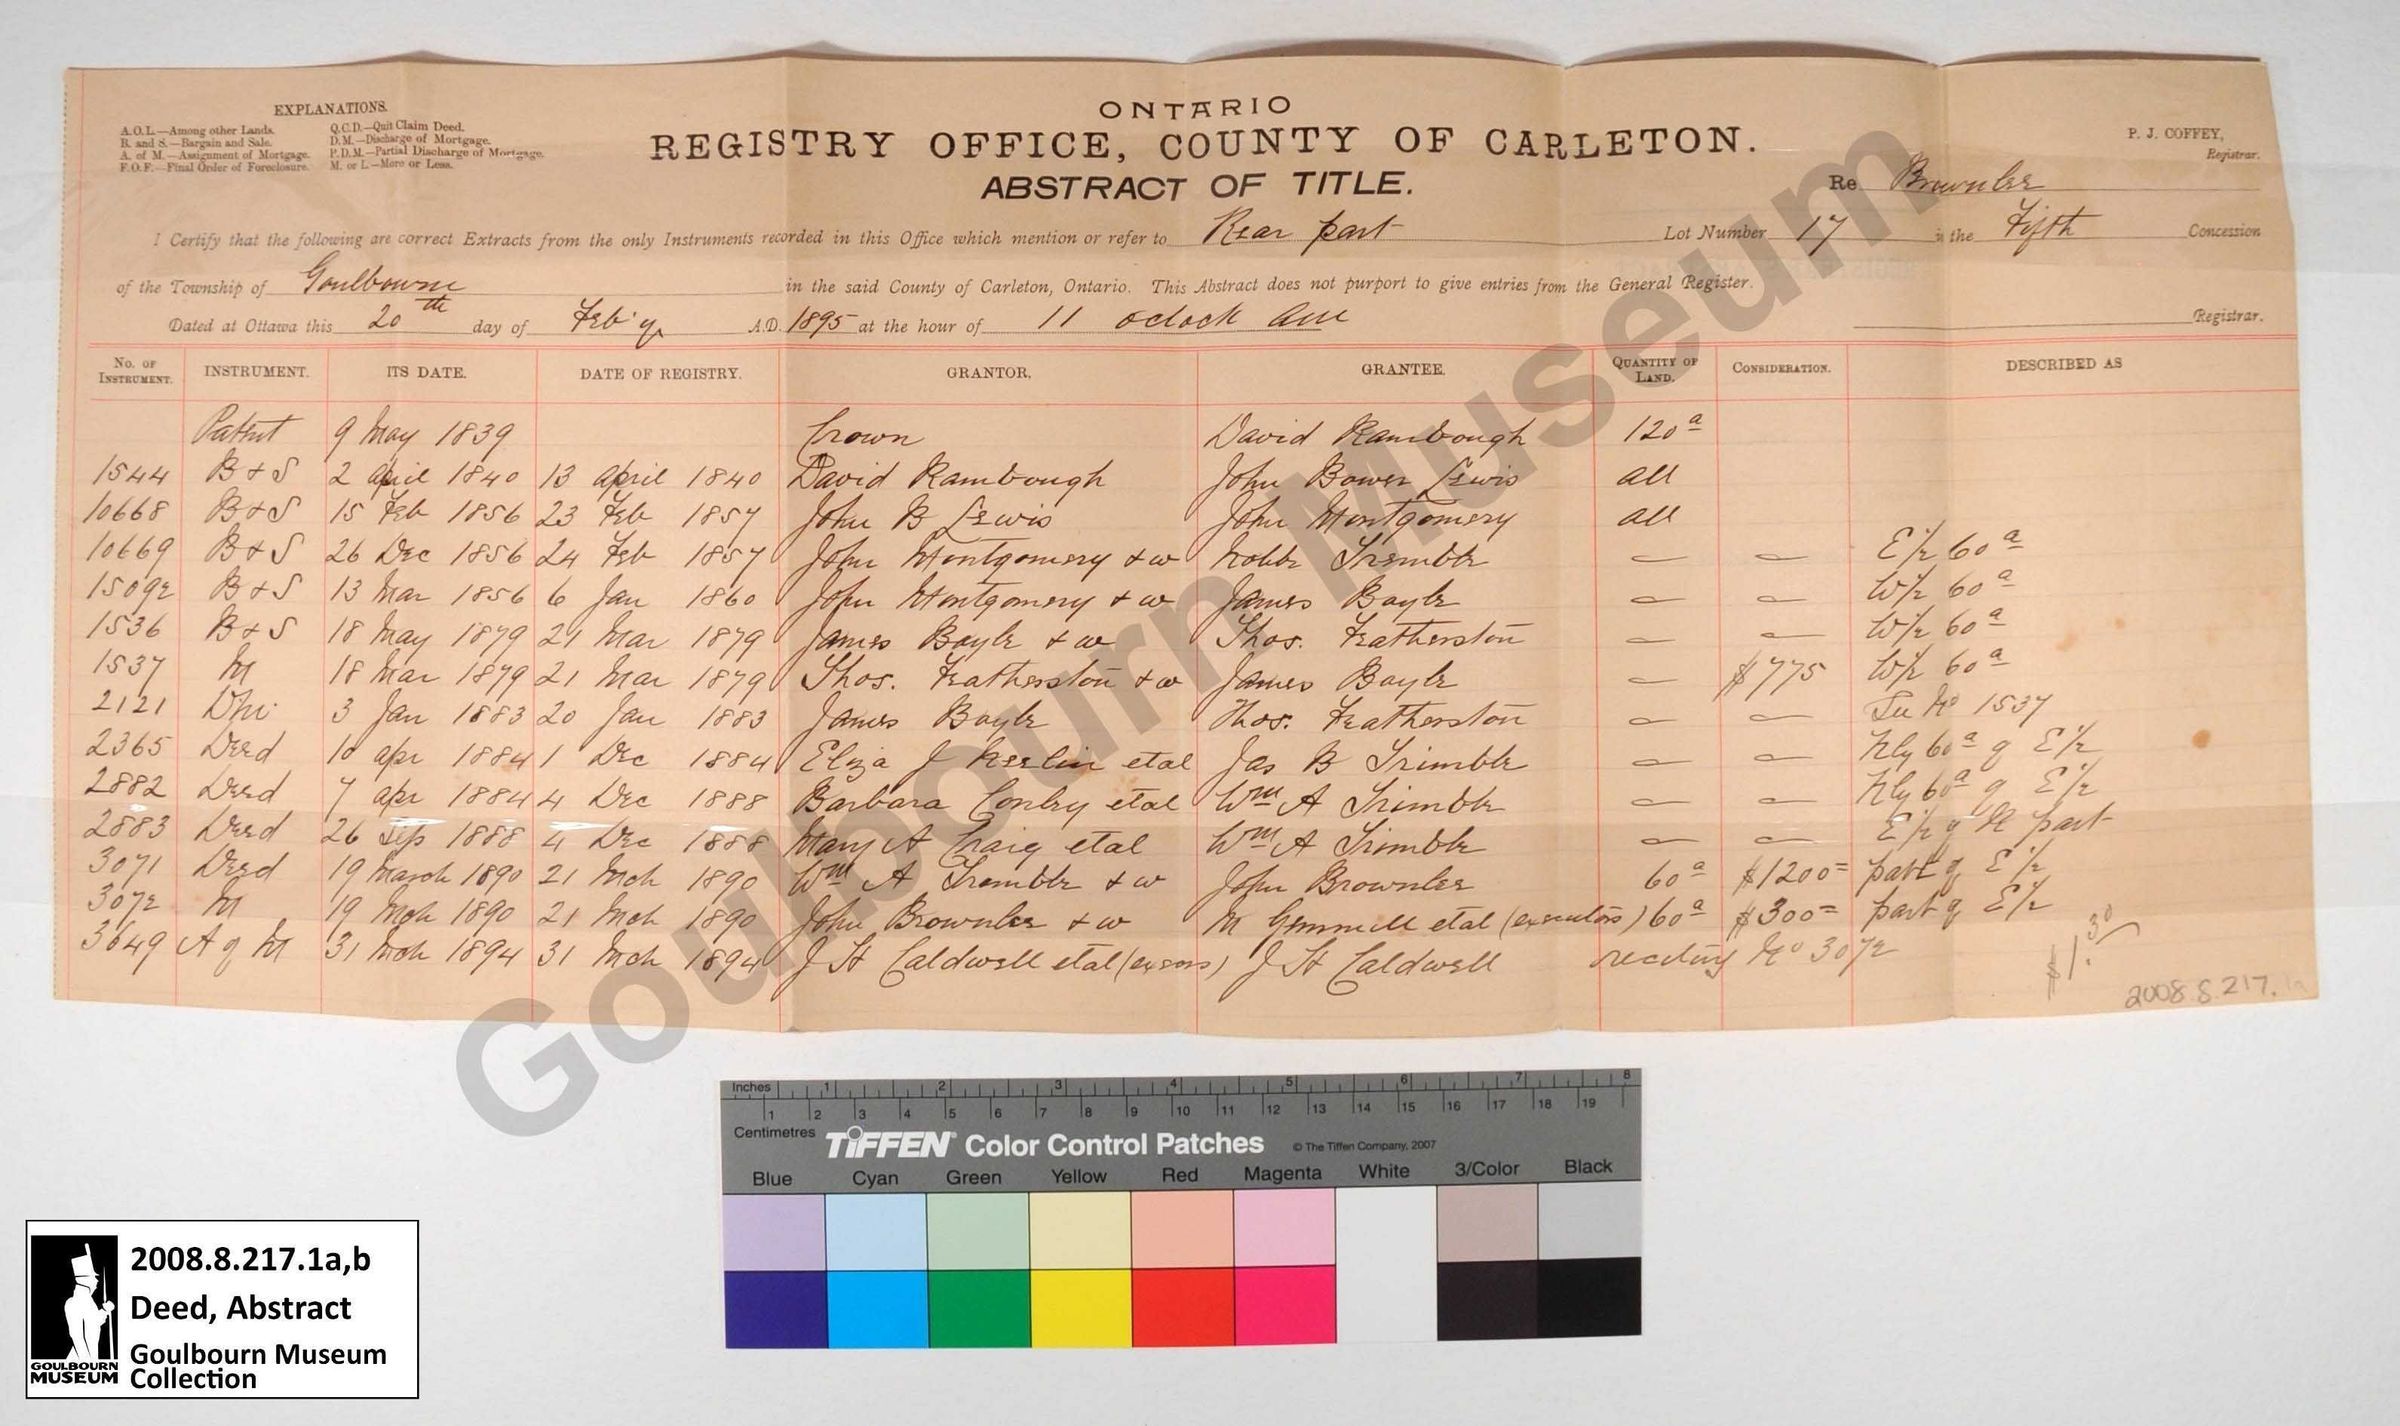 EXPLANATIONS.
A.O.L.—Among other Lands. Q.C.D.—Quit Claim Deed.
B. and S.—Bargain and Sale. D.M.—Discharge of Mortgage.
A. of M.—Assignment of Mortgage. P.D.M.—Partial Discharge of Mortgage.
F.O.F.—Final Order of Foreclosure. M. or L.—More or Less.
ONTARIO
REGISTRY OFFICE, COUNTY OF CARLETON.
ABSTRACT OF TITLE.
P. J. COFFEY,
Registrar.
Re Brownlee
I Certify that the following are correct Extracts from the only Instruments recorded in this Office which mention or refer to Rear part Lot Number 17 in the Fifth Concession
of the Township of Goulbourn in the said County of Carleton, Ontario. This Abstract does not purport to give entries from the General Register.
Dated at Ottawa this 20th day of Feb'y A.D. 1895 at the hour of 11 oclock am Registrar.
No. OF INSTRUMENT. INSTRUMENT. ITS DATE. DATE OF REGISTRY. GRANTOR. GRANTEE. QUANTITY OF LAND. CONSIDERATION. DESCRIBED AS
Patent 9 May 1839 Crown David Rambough 120a
1544 B & S 2 april 1840 13 april 1840 David Rambough John Bower Lewis all
10668 B & S 15 Feb 1856 23 Feb 1857 John B Lewis John Montgomery all
10669 B & S 26 Dec 1856 24 Feb 1857 John Montgomery & w Trimble — — E½ 60a
15092 B & S 13 Mar 1856 6 Jan 1860 John Montgomery & w James Boyle — — W½ 60a
1536 B & S 18 May 1879 21 Mar 1879 James Boyle & w Thos. Featherston — — W½ 60a
1537 M 18 Mar 1879 21 Mar 1879 Thos. Featherston & w James Boyle — $775 W½ 60a
2121 DM 3 Jan 1883 20 Jan 1883 James Boyle Thos. Featherston — — See No 1537
2365 Deed 10 apr 1884 1 Dec 1884 Eliza J etal Jas B Trimble — — Nly 60a of E½
2882 Deed 7 apr 1884 4 Dec 1888 Barbara Conley etal Wm A Trimble — — Nly 60a of E½
2883 Deed 26 Sep 1888 4 Dec 1888 Mary A Craig etal Wm A Trimble — — E½ of R part
3071 Deed 19 March 1890 21 Mch 1890 Wm A Trimble & w John Brownlee 60a $1200= part of E½
3072 M 19 Mch 1890 21 Mch 1890 John Brownlee & w M Gemmill etal (executors) 60a $300= part of E½
3649 A of M 31 Mch 1894 31 Mch 1894 J H Caldwell etal (exors) J H Caldwell reciting No 3072
$1.30
2008.8.217.1a
Goulbourn Museum
Inches 1 2 3 4 5 6 7 8
1 2 3 4 5 6 7 8 9 10 11 12 13 14 15 16 17 18 19
Centimetres
TIFFEN® Color Control Patches © The Tiffen Company, 2007
Blue Cyan Green Yellow Red Magenta White 3/Color Black
2008.8.217.1a,b
Deed, Abstract
Goulbourn Museum
Collection
GOULBOURN
MUSEUM